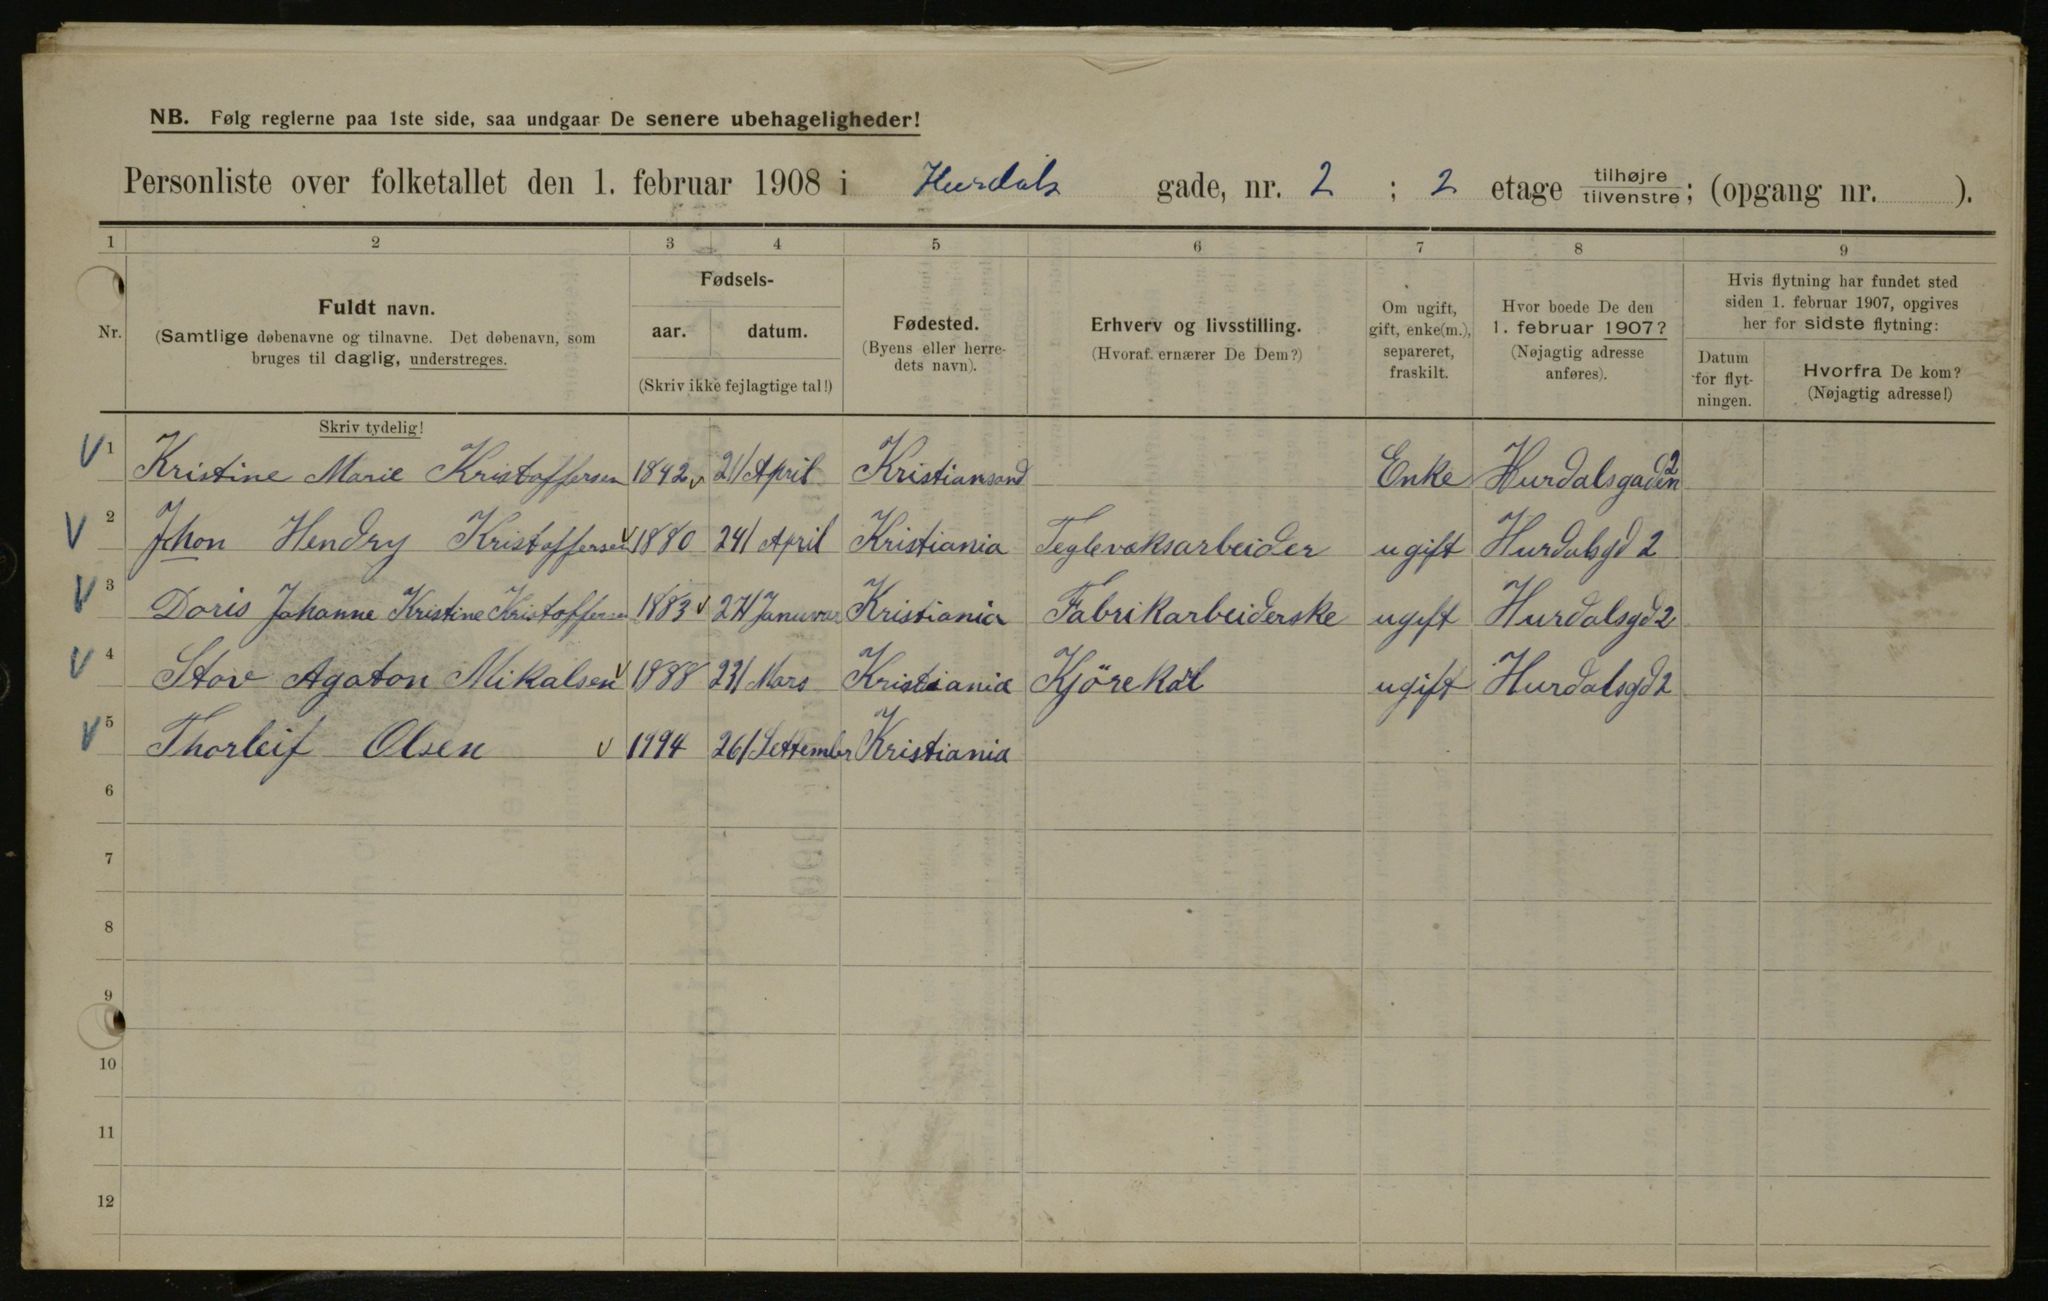 NB. Følg reglerne paa 1ste side, saa undgaar De senere ubehageligheder!
Personliste over folketallet den 1. februar 1908 i Hurdals gade, nr. 2 ; 2 etage tilhøjre tilvenstre; (opgang nr. ).
1 2 3 4 5 6 7 8 9
Nr. Fuldt navn. (Samtlige døbenavne og tilnavne. Det døbenavn, som bruges til daglig, understreges.
Skriv tydelig!
Fødsels-
aar. datum.
(Skriv ikke fejlagtige tal!)
Fødested.
(Byens eller herre-
dets navn).
Erhverv og livsstilling.
(Hvoraf ernærer De Dem?)
Om ugift,
gift, enke(m.),
separeret,
fraskilt.
Hvor boede De den
1. februar 1907?
(Nøjagtig adresse
anføres).
Hvis flytning har fundet sted
siden 1. februar 1907, opgives
her for sidste flytning:
Datum
for flyt-
ningen.
Hvorfra De kom?
(Nøjagtig adresse!)
V 1 Kristine Marie Kristoffersen 1842 v 21/ April Kristiansand Enke Hurdalsgaden 2
V 2 Jhon Hendry Kristoffersen v 1880 24/ April Kristiania Teglevæksarbeider ugift Hurdalsgd 2
V 3 Doris Johanne Kristine Kristoffersen 1883 v 27/ Januvar Kristiania Fabrikarbeiderske ugift Hurdalsgd 2
V 4 Stov Agaton Mikalsen v 1888 23/ Mars Kristiania Kjörekarl ugift Hurdalsgd 2
V 5 Thorleif Olsen v 1994 26/ Settember Kristiania
6
7
8
9
10
11
12